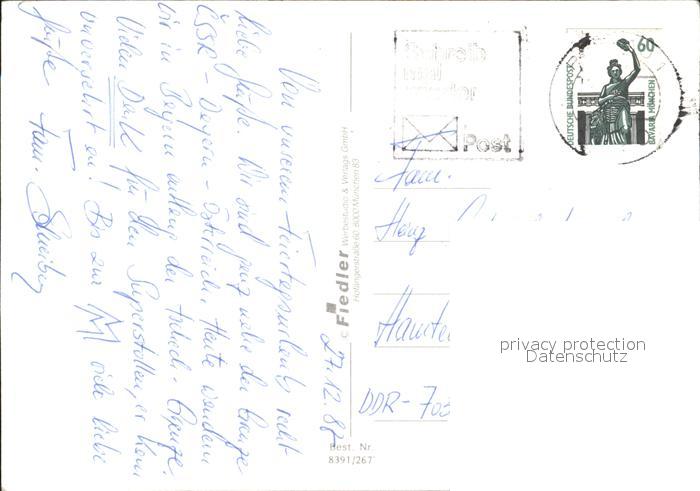 27.12.87
Von unserem Feiertagsurlaub recht
liebe Grüße. Wir sind ganz nahe der Grenze
ČSSR - Bayern - Österreich. Heute wandern
wir in Bayern entlang der tschech. Grenze.
Vielen Dank für den Superstollen, er kam
unversehrt an! Bis zur M viele liebe
Grüße Fam.
© Fiedler Werbestudio & Verlags GmbH
Hoflingerstraße 60, 8000 München 83
Best. Nr.
8391/267
Schreib
mal
wieder
Post
60
DEUTSCHE BUNDESPOST
BAVARIA MÜNCHEN
Fam.
DDR-703
privacy protection
Datenschutz